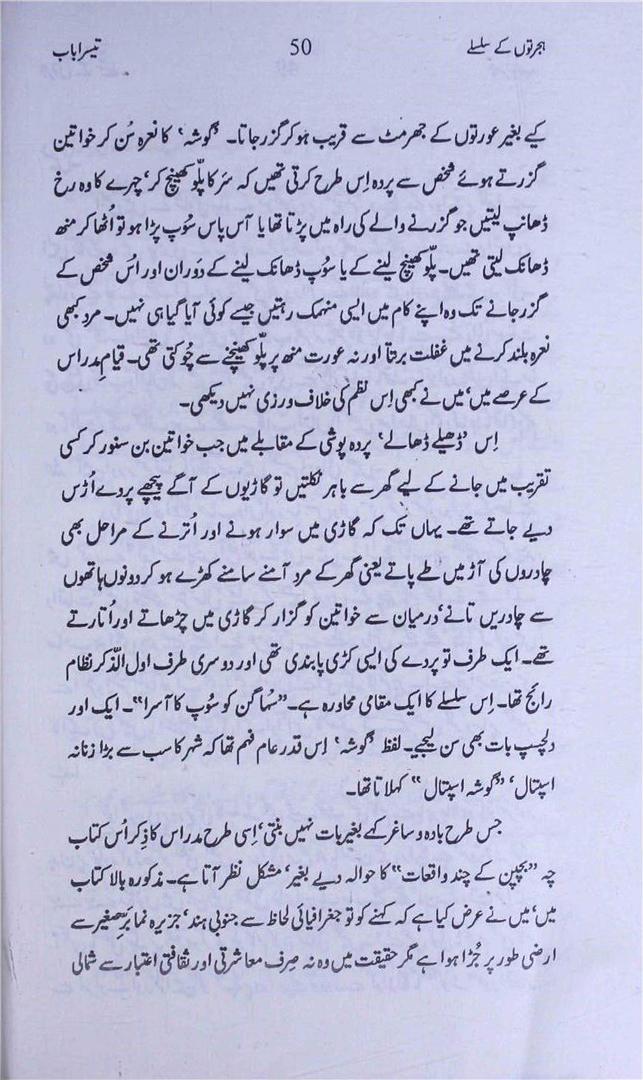 ہجرتوں کے سلسلے 50 تیسرا باب
کیے بغیر عورتوں کے جھرمٹ سے قریب ہو کر گزر جاتا۔ ’گوشہ‘ کا نعرہ سُن کر خواتین
گزرتے ہوئے شخص سے پردہ اِس طرح کرتی تھیں کہ سَر کا پلّو کھینچ کر‘ چہرے کا وہ رخ
ڈھانپ لیتیں جو گزرنے والے کی راہ میں پڑتا تھا یا آس پاس سُوپ پڑا ہو تو اُٹھا کر منھ
ڈھانک لیتی تھیں۔ پلّو کھینچ لینے کے یا سُوپ ڈھانک لینے کے دَوران اور اُس شخص کے
گزر جانے تک وہ اپنے کام میں ایسی منہمک رہتیں جیسے کوئی آیا گیا ہی نہیں۔ مرد کبھی
نعرہ بلند کرنے میں غفلت برتتا اور نہ عورت منھ پر پلّو کھینچنے سے چُوکتی تھی۔ قیامِ مدراس
کے عرصے میں‘ میں نے کبھی اِس نظم کی خلاف ورزی نہیں دیکھی۔
اِس ’ڈھیلے ڈھالے‘ پردہ پوشی کے مقابلے میں جب خواتین بن سنور کر کسی
تقریب میں جانے کے لیے گھر سے باہر نکلتیں تو گاڑیوں کے آگے پیچھے پردے اُڑس
دیے جاتے تھے۔ یہاں تک کہ گاڑی میں سوار ہونے اور اُترنے کے مراحل بھی
چادروں کی آڑ میں طے پاتے یعنی گھر کے مرد آمنے سامنے کھڑے ہو کر دونوں ہاتھوں
سے چادریں تانے‘ درمیان سے خواتین کو گزار کر گاڑی میں چڑھاتے اور اُتارتے
تھے۔ ایک طرف تو پردے کی ایسی کڑی پابندی تھی اور دوسری طرف اول الذّکر نظام
رائج تھا۔ اِس سلسلے کا ایک مقامی محاورہ ہے۔ ”سُہاگن کو سُوپ کا آسرا“۔ ایک اور
دلچسپ بات بھی سن لیجیے۔ لفظ ’گوشہ‘ اِس قدر عام فہم تھا کہ شہر کا سب سے بڑا زنانہ
اسپتال‘ ”گوشہ اسپتال“ کہلاتا تھا۔
جس طرح بادہ و ساغر کہے بغیر بات نہیں بنتی‘ اِسی طرح مدراس کا ذکر اُس کتاب
چہ ”بچپن کے چند واقعات“ کا حوالہ دیے بغیر‘ مشکل نظر آتا ہے۔ مذکورہ بالا کتاب
میں‘ میں نے عرض کیا ہے کہ کہنے کو تو جغرافیائی لحاظ سے جنوبی ہند‘ جزیرہ نما برِّصغیر سے
ارضی طور پر جُڑا ہوا ہے مگر حقیقت میں وہ نہ صِرف معاشرتی اور ثقافتی اعتبار سے شمالی